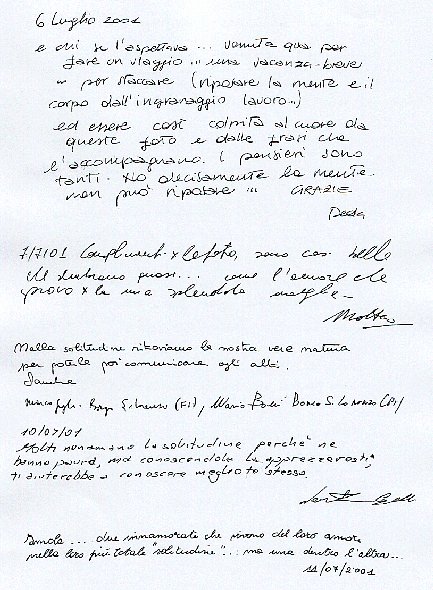 6 Luglio 2001
e chi se l'aspettava... venuta qua per
fare un viaggio... una vacanza breve
per staccare (riposare la mente e il
corpo dall'ingranaggio lavoro..)
ed essere così colpita al cuore da
queste foto e dalle frasi che
l'accompagnano. I pensieri sono
tanti. No decisamente la mente
non può riposare... GRAZIE
7/7/01 Compliment. x le foto, sono così belle
che sembrano quasi... come l'amore che
provo x la mia splendida moglie
Nella solitudine ritroviamo la nostra vera natura
per poterla poi comunicare agli altri.
(FI), Mario Borgo S. Lorenzo (FI)
10/07/01
Molti non amano la solitudine perché ne
hanno paura, ma conoscendola la apprezzeresti,
ti aiuterebbe a conoscere meglio te stesso.
.... due innamorati che vivono del loro amore
nella loro più totale "solitudine"... ma una dentro l'altra...
11/07/2001